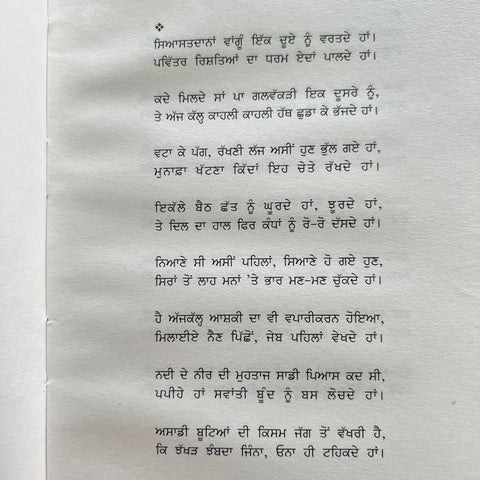 ਸਿਆਸਤਦਾਨਾਂ ਵਾਂਗੂੰ ਇੱਕ ਦੂਏ ਨੂੰ ਵਰਤਦੇ ਹਾਂ।
ਪਵਿੱਤਰ ਰਿਸ਼ਤਿਆਂ ਦਾ ਧਰਮ ਏਦਾਂ ਪਾਲਦੇ ਹਾਂ।
ਕਦੇ ਮਿਲਦੇ ਸਾਂ ਪਾ ਗਲਵੱਕੜੀ ਇਕ ਦੂਸਰੇ ਨੂੰ,
ਤੇ ਅੱਜ ਕੱਲ੍ਹ ਕਾਹਲੀ ਕਾਹਲੀ ਹੱਥ ਛੁਡਾ ਕੇ ਭੱਜਦੇ ਹਾਂ।
ਵਟਾ ਕੇ ਪੱਗ, ਰੱਖਣੀ ਲੱਜ ਅਸੀਂ ਹੁਣ ਭੁੱਲ ਗਏ ਹਾਂ,
ਮੁਨਾਫ਼ਾ ਖੱਟਣਾ ਕਿੱਦਾਂ ਇਹ ਚੇਤੇ ਰੱਖਦੇ ਹਾਂ।
ਇਕੱਲੇ ਬੈਠ ਛੱਤ ਨੂੰ ਘੂਰਦੇ ਹਾਂ, ਝੂਰਦੇ ਹਾਂ,
ਤੇ ਦਿਲ ਦਾ ਹਾਲ ਫਿਰ ਕੰਧਾਂ ਨੂੰ ਰੋ-ਰੋ ਦੱਸਦੇ ਹਾਂ।
ਨਿਆਣੇ ਸੀ ਅਸੀਂ ਪਹਿਲਾਂ, ਸਿਆਣੇ ਹੋ ਗਏ ਹੁਣ,
ਸਿਰਾਂ ਤੋਂ ਲਾਹ ਮਨਾਂ 'ਤੇ ਭਾਰ ਮਣ-ਮਣ ਚੁੱਕਦੇ ਹਾਂ।
ਹੈ ਅੱਜਕੱਲ੍ਹ ਆਸ਼ਕੀ ਦਾ ਵੀ ਵਪਾਰੀਕਰਨ ਹੋਇਆ,
ਮਿਲਾਈਏ ਨੈਣ ਪਿੱਛੋਂ, ਜੇਬ ਪਹਿਲਾਂ ਵੇਖਦੇ ਹਾਂ।
ਨਦੀ ਦੇ ਨੀਰ ਦੀ ਮੁਹਤਾਜ ਸਾਡੀ ਪਿਆਸ ਕਦ ਸੀ,
ਪਪੀਹੇ ਹਾਂ ਸਵਾਂਤੀ ਬੂੰਦ ਨੂੰ ਬਸ ਲੋਚਦੇ ਹਾਂ।
ਅਸਾਡੀ ਬੂਟਿਆਂ ਦੀ ਕਿਸਮ ਜੱਗ ਤੋਂ ਵੱਖਰੀ ਹੈ,
ਕਿ ਝੱਖੜ ਝੰਬਦਾ ਜਿੰਨਾ, ਓਨਾ ਹੀ ਟਹਿਕਦੇ ਹਾਂ।